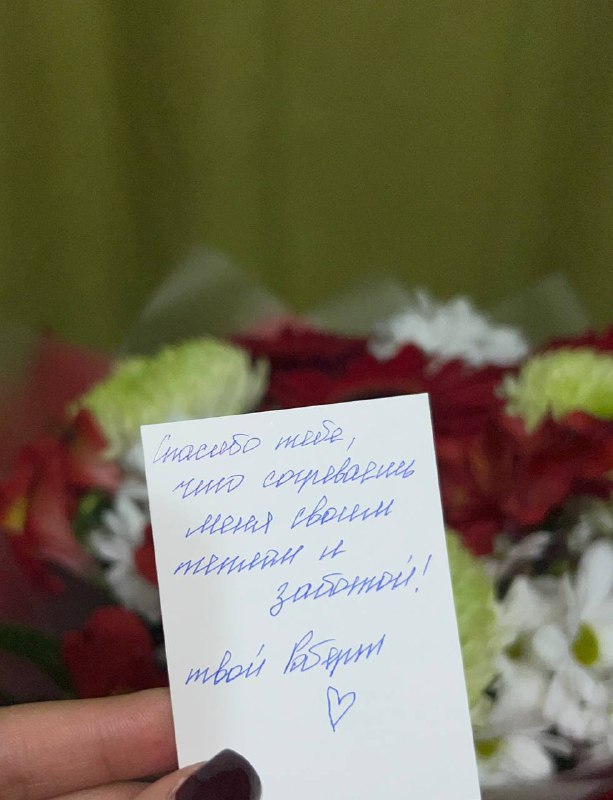 Спасибо тебе,
что согреваешь
меня своим
теплом и
заботой!
твой Роберт